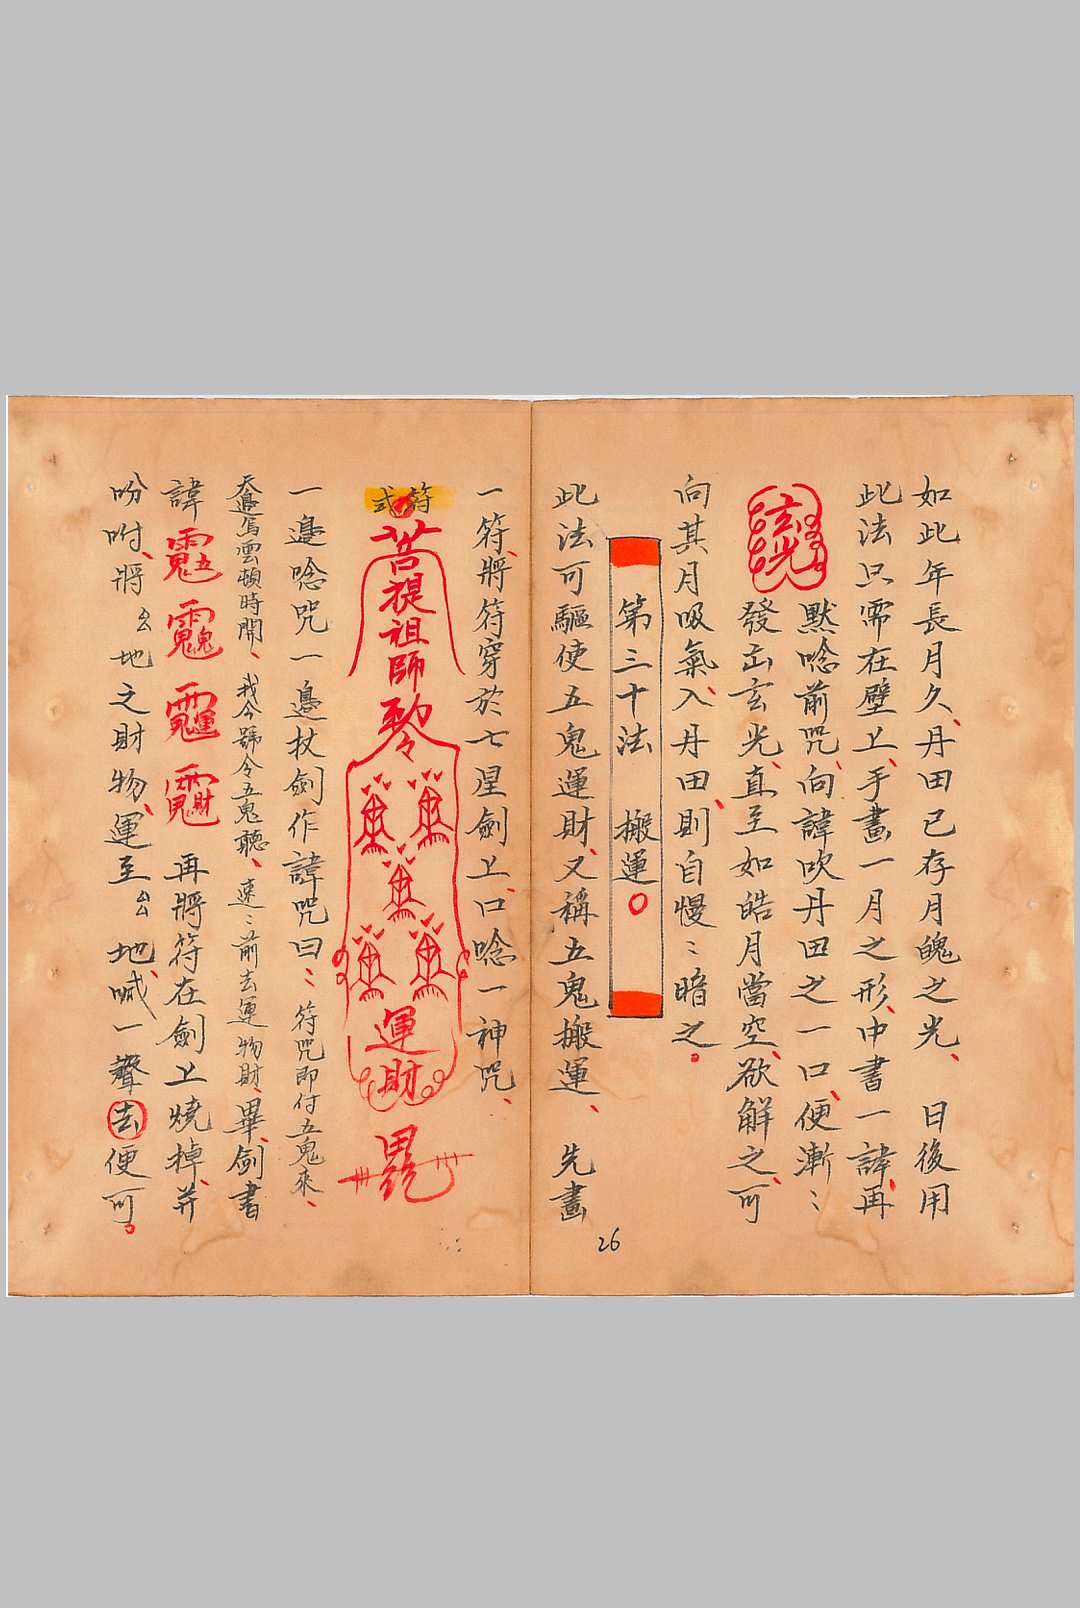 如此年長月久、丹田已存月魄之光、 日後用
此法只需在壁上、手畫一月之形、中書一諱、再
玄光
默唸前咒、向諱吹丹田之一口、便漸〻
發出玄光、直至如皓月當空、欲解之、可
向其月吸氣入、丹田、則自慢〻暗之。
第三十法 搬運○
此法可驅使五鬼運財、又稱五鬼搬運、 先畫
26
一符、將符穿於七星劍上、口唸一神咒、
符式
菩提祖師
運財
一邊唸咒一邊杖劍作諱咒曰〻符咒即付五鬼來、
天邊烏雲頓時開、我今號令五鬼聽、速〻前去運物財、畢、劍書
諱 再將符在劍上燒掉、并
吩咐、將厶厶地之財物、運至厶厶地、喊一聲去便可。